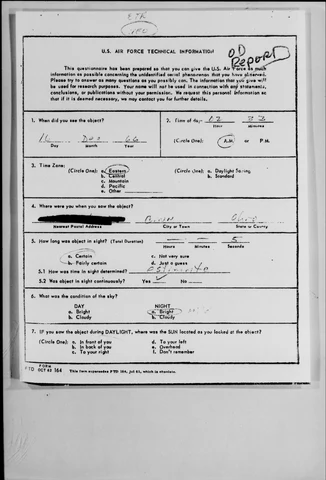 U.S. AIR FORCE TECHNICAL INFORMATION
REPORT
This questionnaire has been prepared so that you can give the U.S. Air Force as much
information as possible concerning the unidentified aerial phenomenon that you have observed.
Please try to answer as many questions as you possibly can. The information that you give will
be used for research purposes. Your name will not be used in connection with any statements,
conclusions, or publications without your permission. We request this personal information so
that if it is deemed necessary, we may contact you for further details.
1. When did you see the object?
16 Dec 66
Day Month Year
2. Time of day:
Hour Minutes
(Circle One): A.M. or P.M.
3. Time Zone:
(Circle One): a. Eastern
b. Central
c. Mountain
d. Pacific
e. Other
(Circle One): a. Daylight Saving
b. Standard
4. Where were you when you saw the object?
Ohio
Nearest Postal Address City or Town State or County
5. How long was object in sight? (Total Duration) 5
Hours Minutes Seconds
a. Certain c. Not very sure
b. Fairly certain d. Just a guess
5.1 How was time in sight determined?
5.2 Was object in sight continuously? Yes No
6. What was the condition of the sky?
DAY NIGHT
a. Bright a. Bright
b. Cloudy b. Cloudy
7. IF you saw the object during DAYLIGHT, where was the SUN located as you looked at the object?
(Circle One): a. In front of you d. To your left
b. In back of you e. Overhead
c. To your right f. Don't remember
FORM
FTD OCT 62 164 This form supersedes FTD 164, Jul 61, which is obsolete.